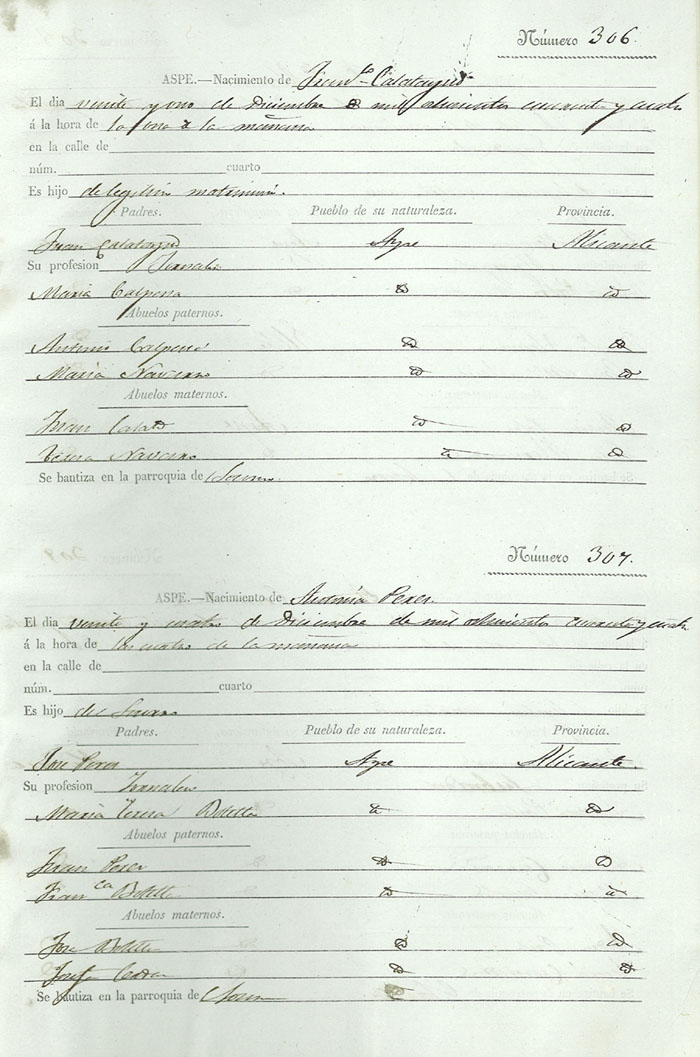 Número 306.
ASPE.—Nacimiento de Franco Calatayud
El dia veinte y uno de Diciembre de mil ochocientos cuarenta y cuatro
á la hora de la una de la mañana
en la calle de
núm. cuarto
Es hijo de legitimo matrimonio.
Padres. Pueblo de su naturaleza. Provincia.
Juan Calatayud Aspe Alicante
Su profesion Jornalero
Maria Calpena
Abuelos paternos.
Antonio
Maria Navarro
Abuelos maternos.
Juan
Teresa Navarro
Se bautiza en la parroquia de
Número 307.
ASPE.—Nacimiento de Antonia Perez.
El dia veinte y cuatro de Diciembre de mil ochocientos cuarenta y cuatro
á la hora de las cuatro de la mañana
en la calle de
núm. cuarto
Es hijo de
Padres. Pueblo de su naturaleza. Provincia.
Jose Perez Aspe Alicante.
Su profesion Jornalero
Maria Teresa Botella
Abuelos paternos.
Juan Perez
Franca Botella
Abuelos maternos.
Jose Botella
Josefa
Se bautiza en la parroquia de